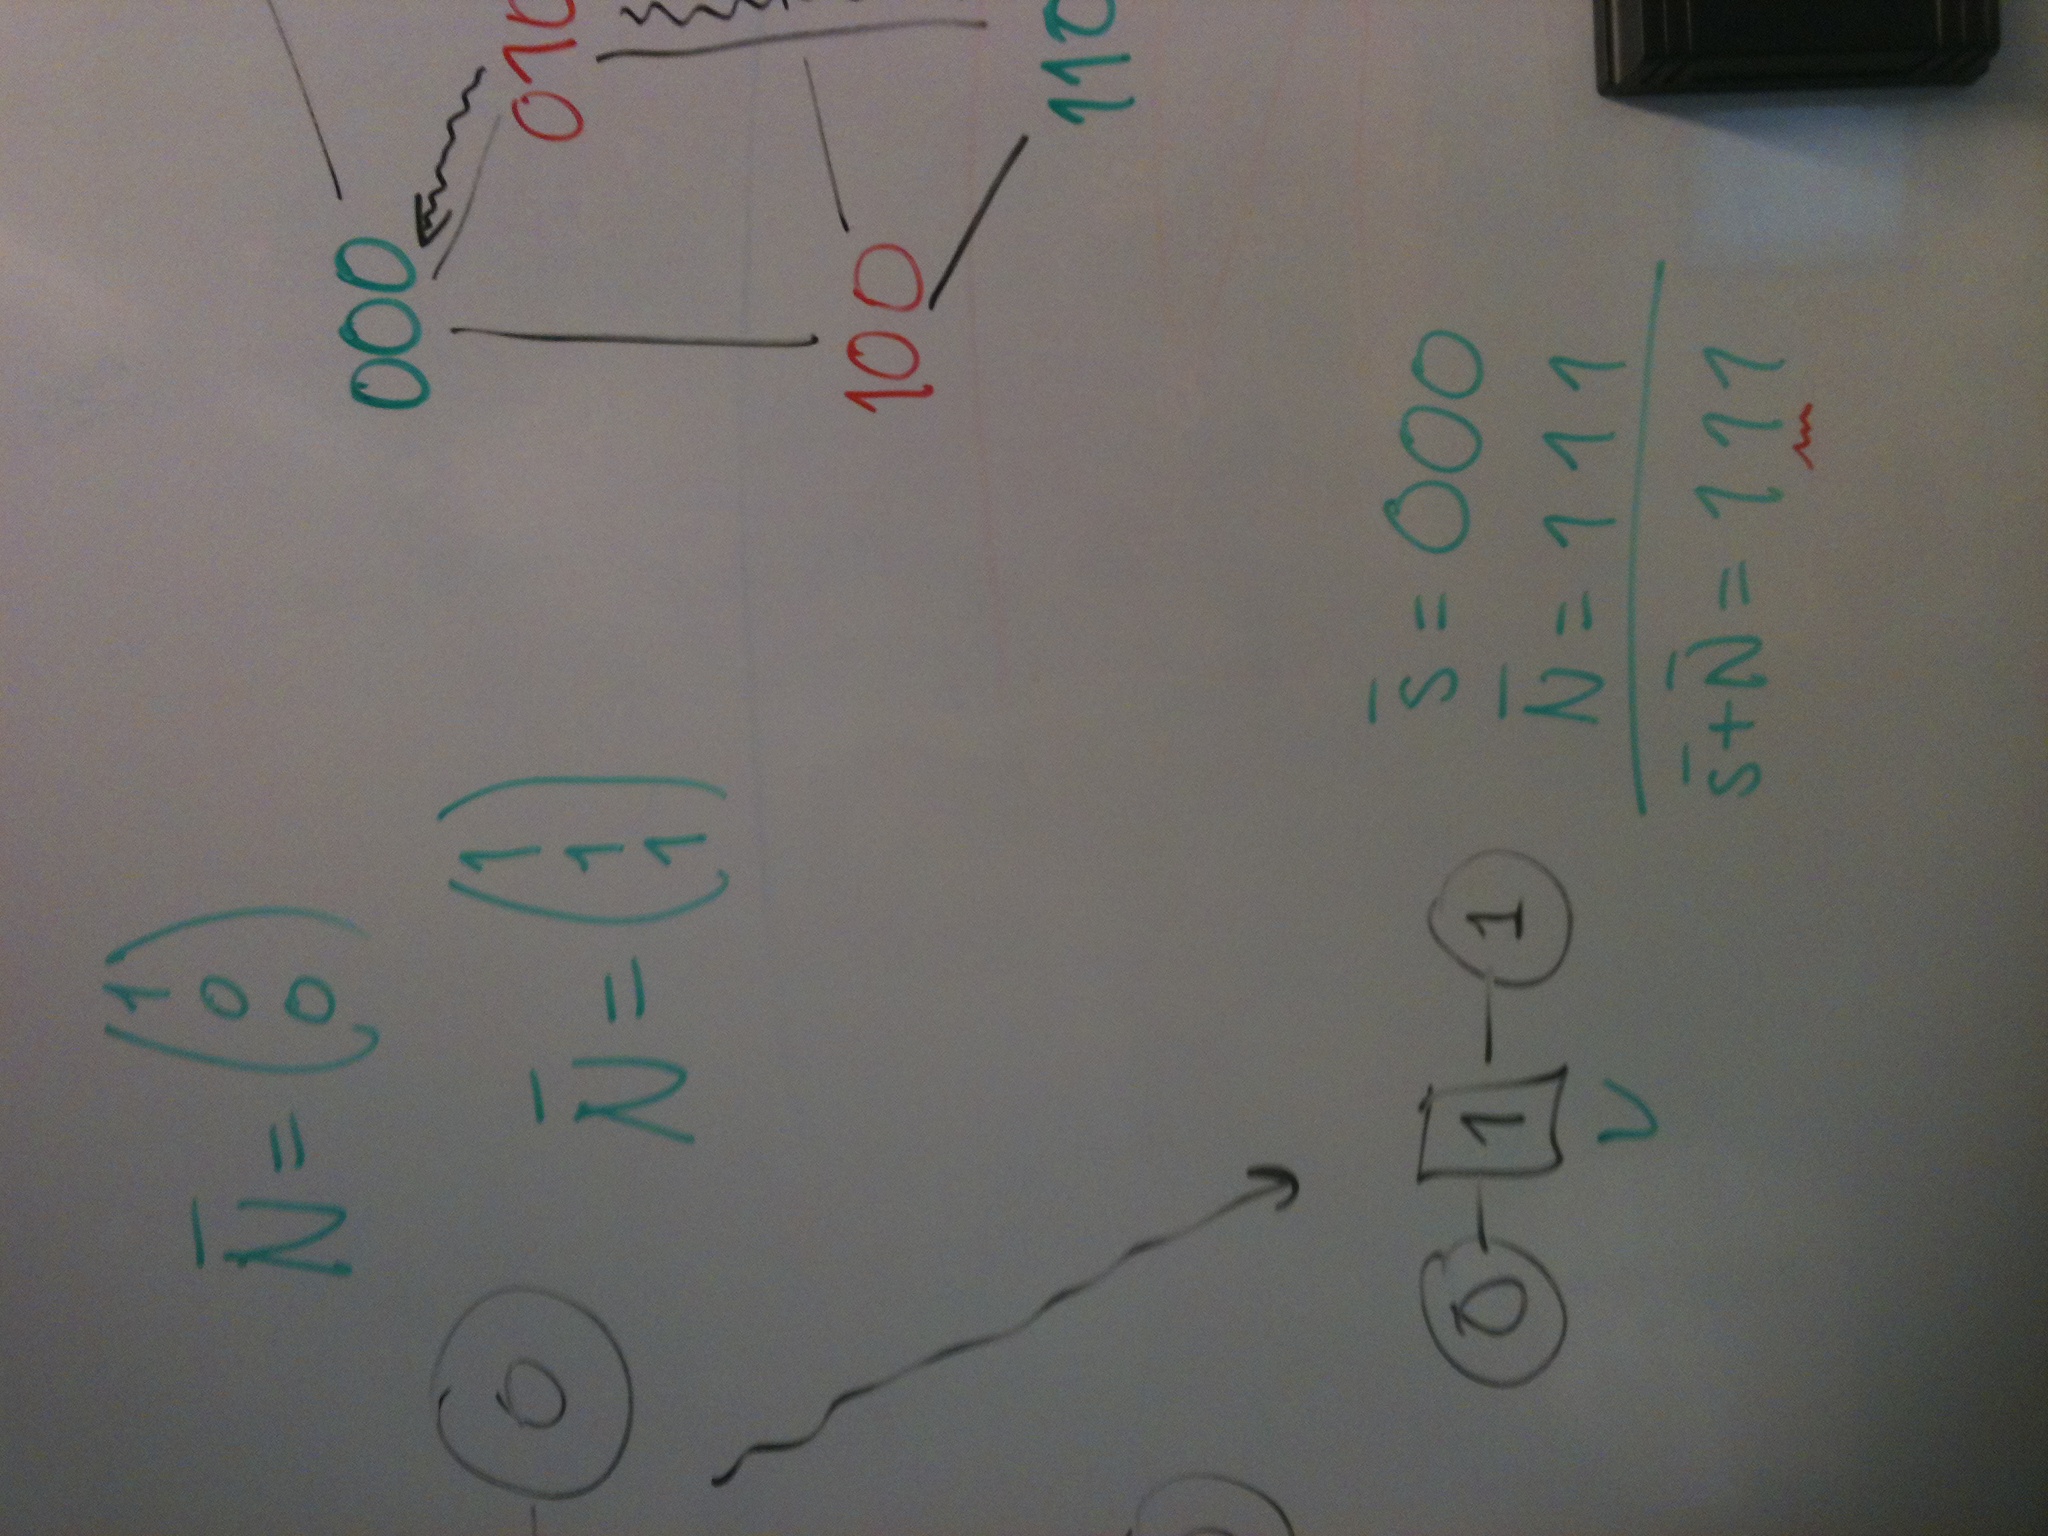 N̄ = (1
0
0)
0
N̄ = (1
1
1)
000
010
100
110
0 - 1 - 1
V
s̄ = 000
N̄ = 111
s̄+N̄ = 111